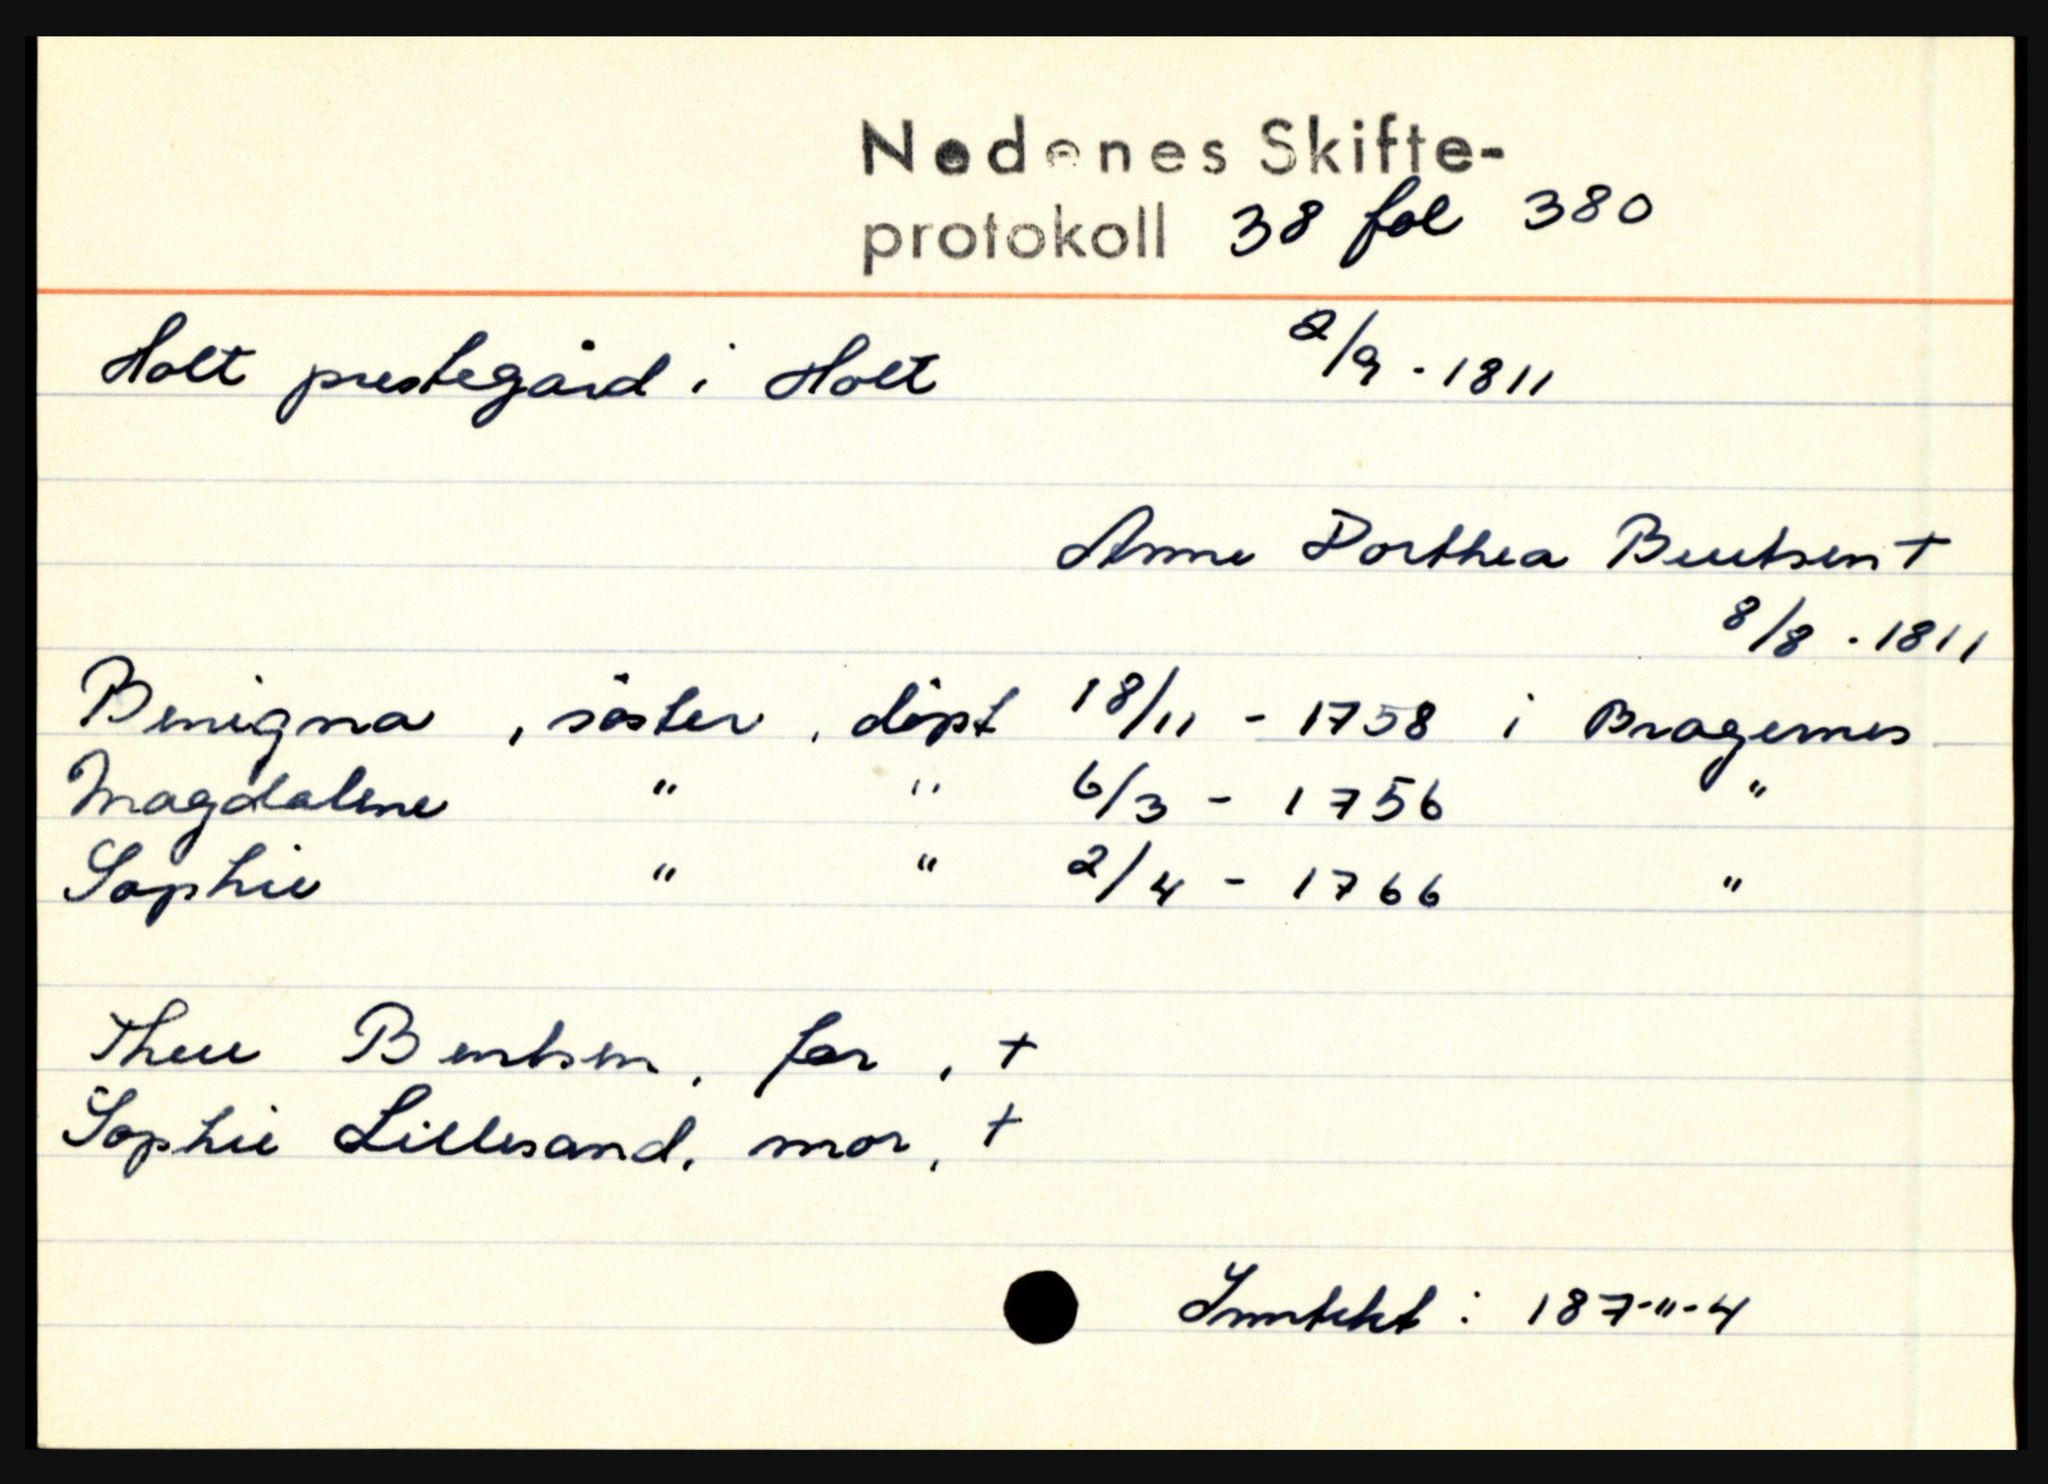 Nedenes Skifte-
protokoll 38 fol 380
Holt prestegård i Holt 2/9 - 1811
Anne Dorthea Bentsen +
8/8 - 1811
Benigna, söster, döpt 18/11 - 1758 i Bragernes
Magdalene " " 6/3 - 1756 "
Sophie " " 2/4 - 1766 "
Bentsen, far, +
Sophie Lillesand, mor, +
Inntekt : 187-"-4